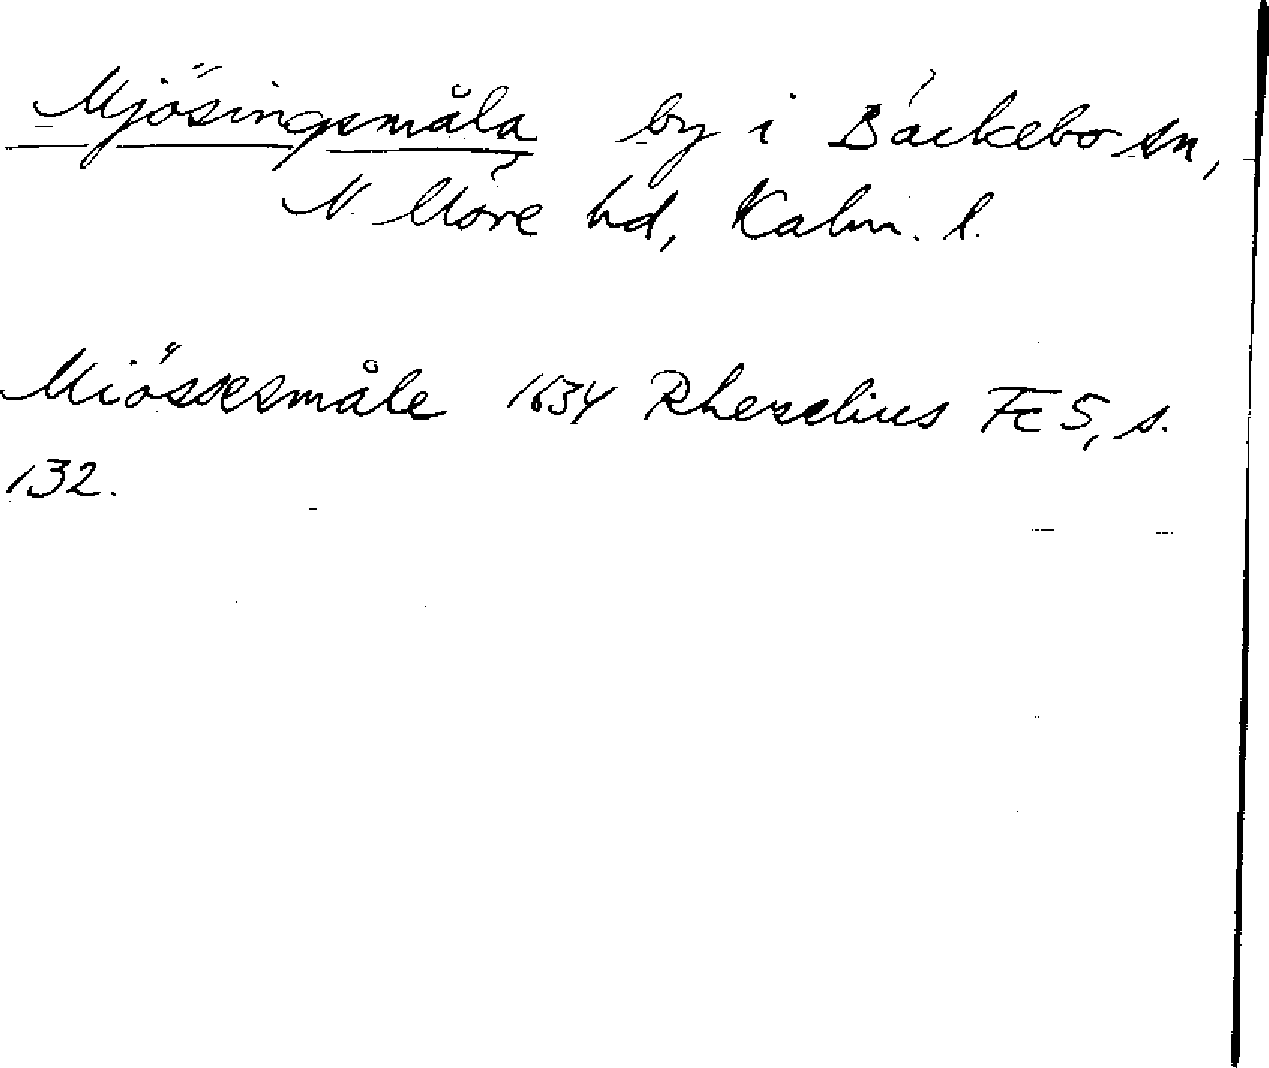 Mjösingsmåla by i Bäckebo sn,
N. Möre hd, Kalm. l.
Miössesmåle 1634 Rhezelius Fc 5, s.
132.